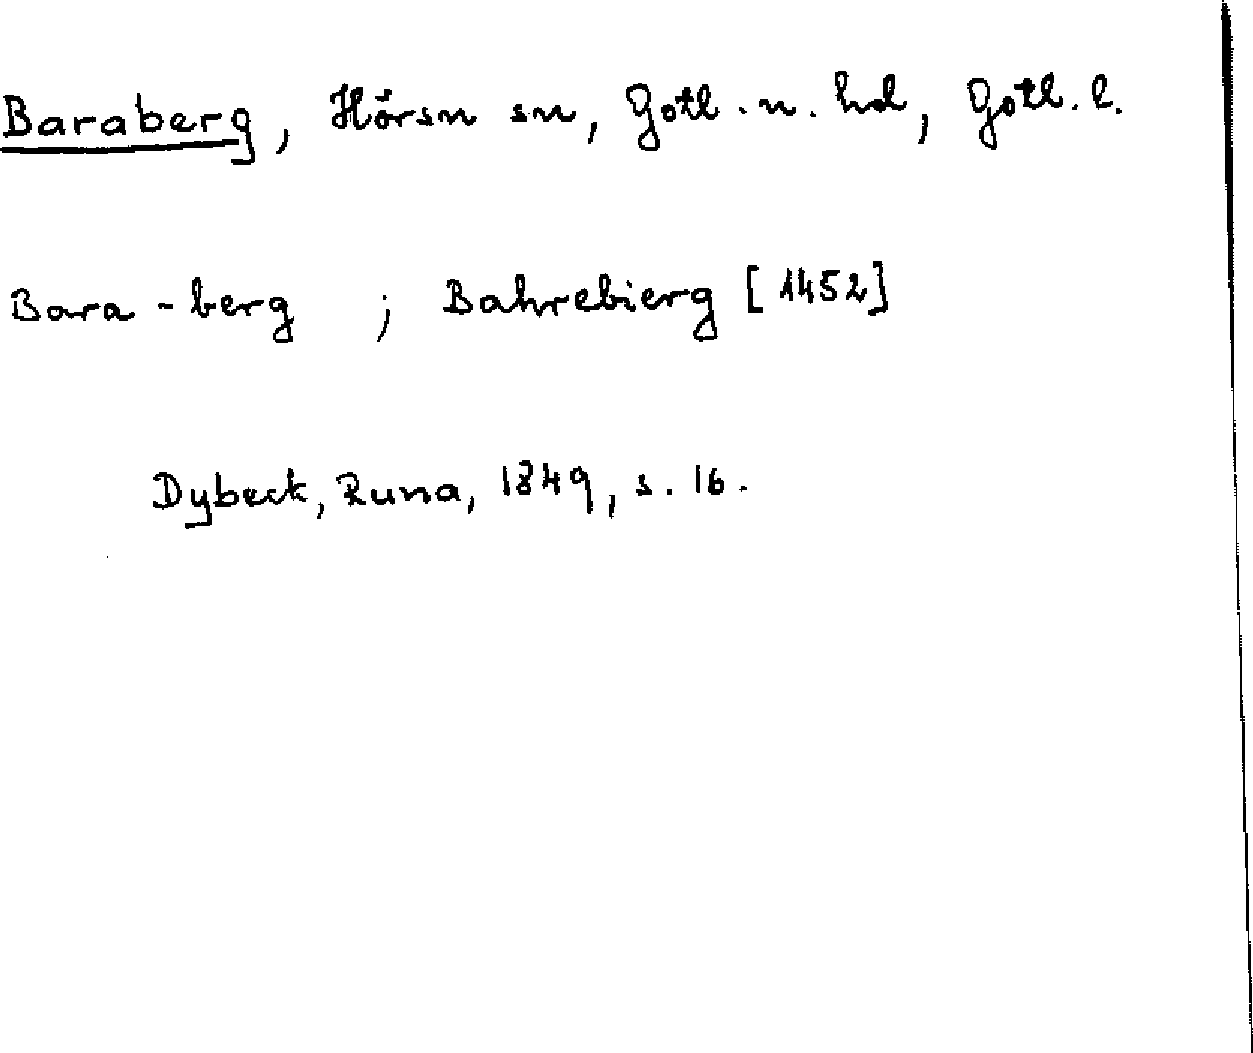 Baraberg, Hörsn sn, Gotl. n. hd, Gotl. l.
Bara-berg ; Bahrebierg [1452]
Dybeck, Runa, 1849, s. 16.